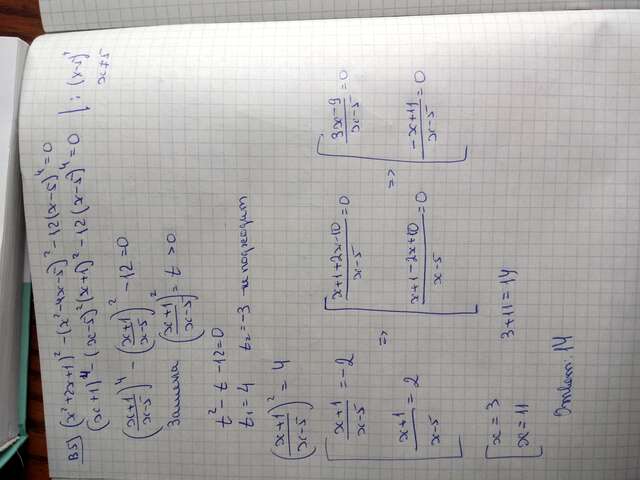 B5) (x²+2x+1)² -(x²-4x-5)² -12(x-5)⁴=0
(x+1)⁴ - (x-5)²(x+1)² -12(x-5)⁴=0 | : (x-5)⁴
x≠5
((x+1)/(x-5))⁴ - ((x+1)/(x-5))² -12=0
Замена ((x+1)/(x-5))² = t >0
t² - t -12=0
t₁ = 4 t₂ = -3 - не подходит
((x+1)/(x-5))² = 4
[ (x+1)/(x-5) = -2 => [ (x+1+2x-10)/(x-5) = 0 => [ (3x-9)/(x-5) = 0
(x+1)/(x-5) = 2 (x+1-2x+10)/(x-5) = 0 (-x+11)/(x-5) = 0
[ x = 3 3+11=14
x = 11
Ответ: 14